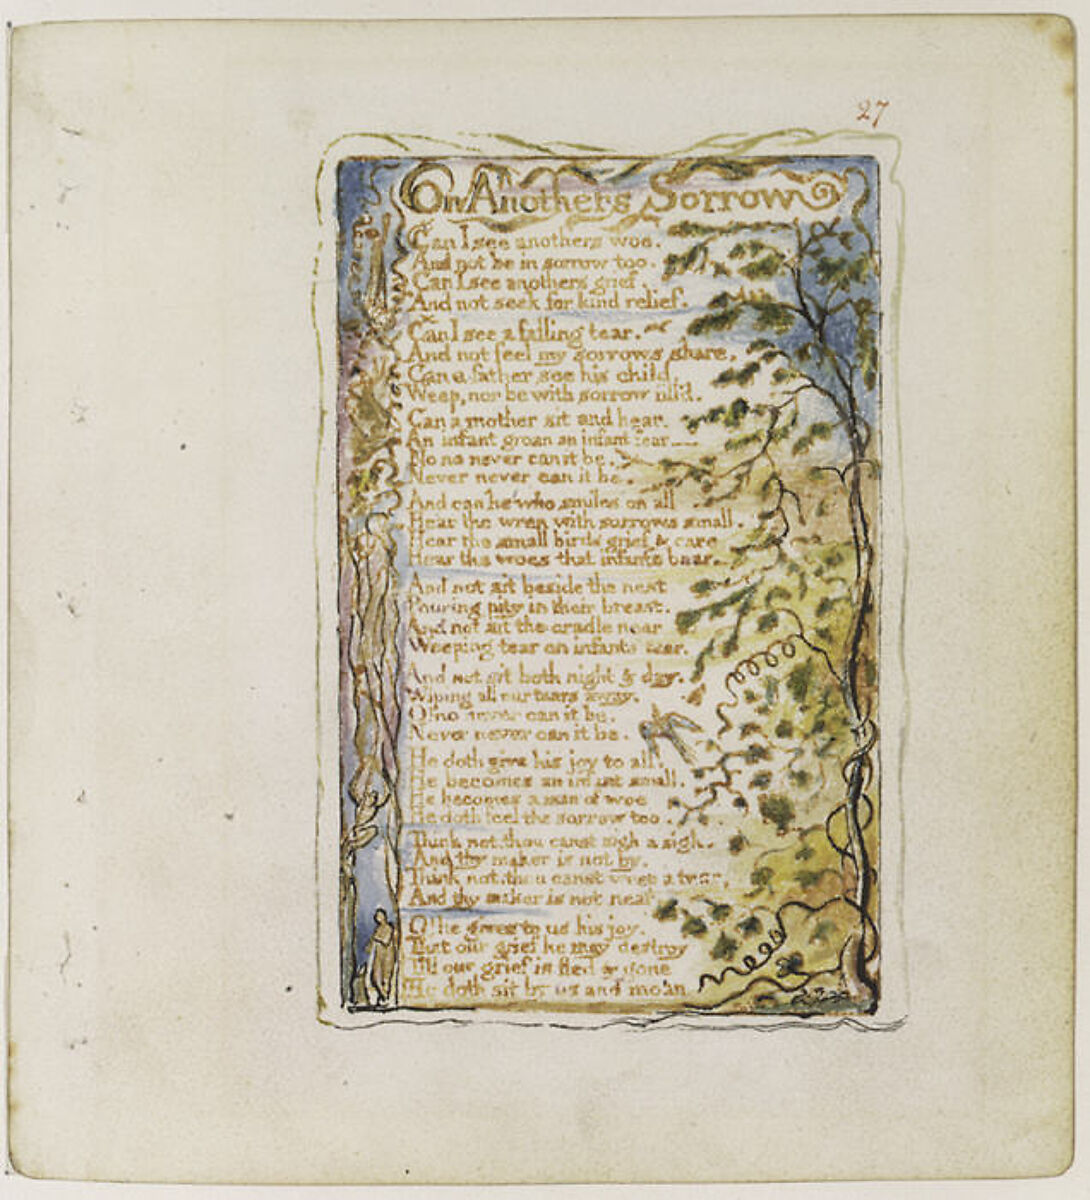 27
On Anothers Sorrow
Can I see anothers woe.
And not be in sorrow too.
Can I see anothers grief.
And not seek for kind relief.
Can I see a falling tear.
And not feel my sorrows share,
Can a father see his child,
Weep, nor be with sorrow fill'd.
Can a mother sit and hear.
An infant groan an infant fear—
No no never can it be.
Never never can it be.
And can he who smiles on all
Hear the wren with sorrows small.
Hear the small birds grief & care
Hear the woes that infants bear.
And not sit beside the nest
Pouring pity in their breast.
And not sit the cradle near
Weeping tear on infants tear.
And not sit both night & day.
Wiping all our tears away.
O! no never can it be.
Never never can it be.
He doth give his joy to all.
He becomes an infant small.
He becomes a man of woe
He doth feel the sorrow too.
Think not. thou canst sigh a sigh.
And thy maker is not by.
Think not, thou canst weep a tear,
And thy maker is not near.
O! he gives to us his joy.
That our grief he may destroy
Till our grief is fled & gone
He doth sit by us and moan